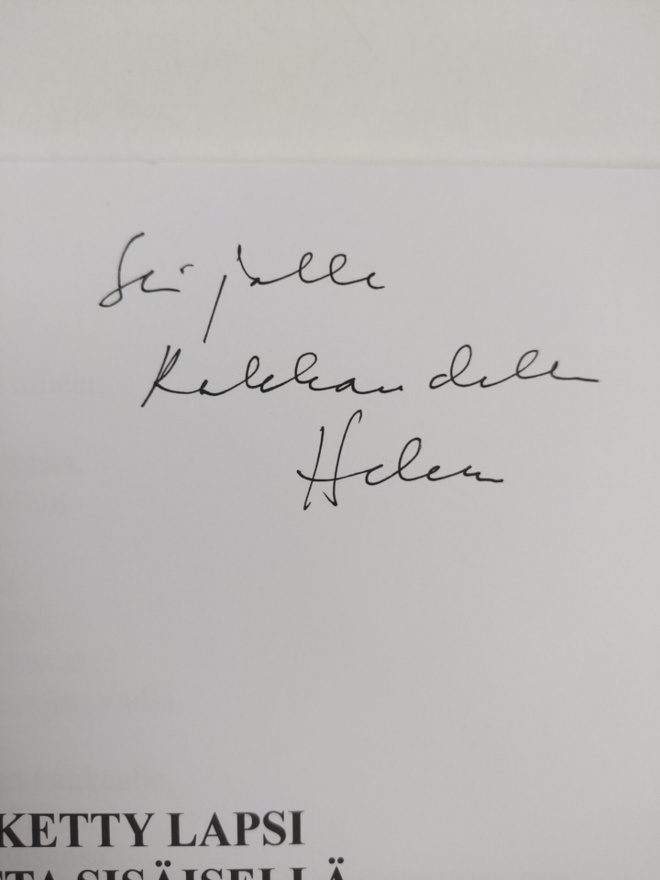 Seijalle
Rakkaudella
Helena
KETTY LAPSI
TA SISÄISELLÄ